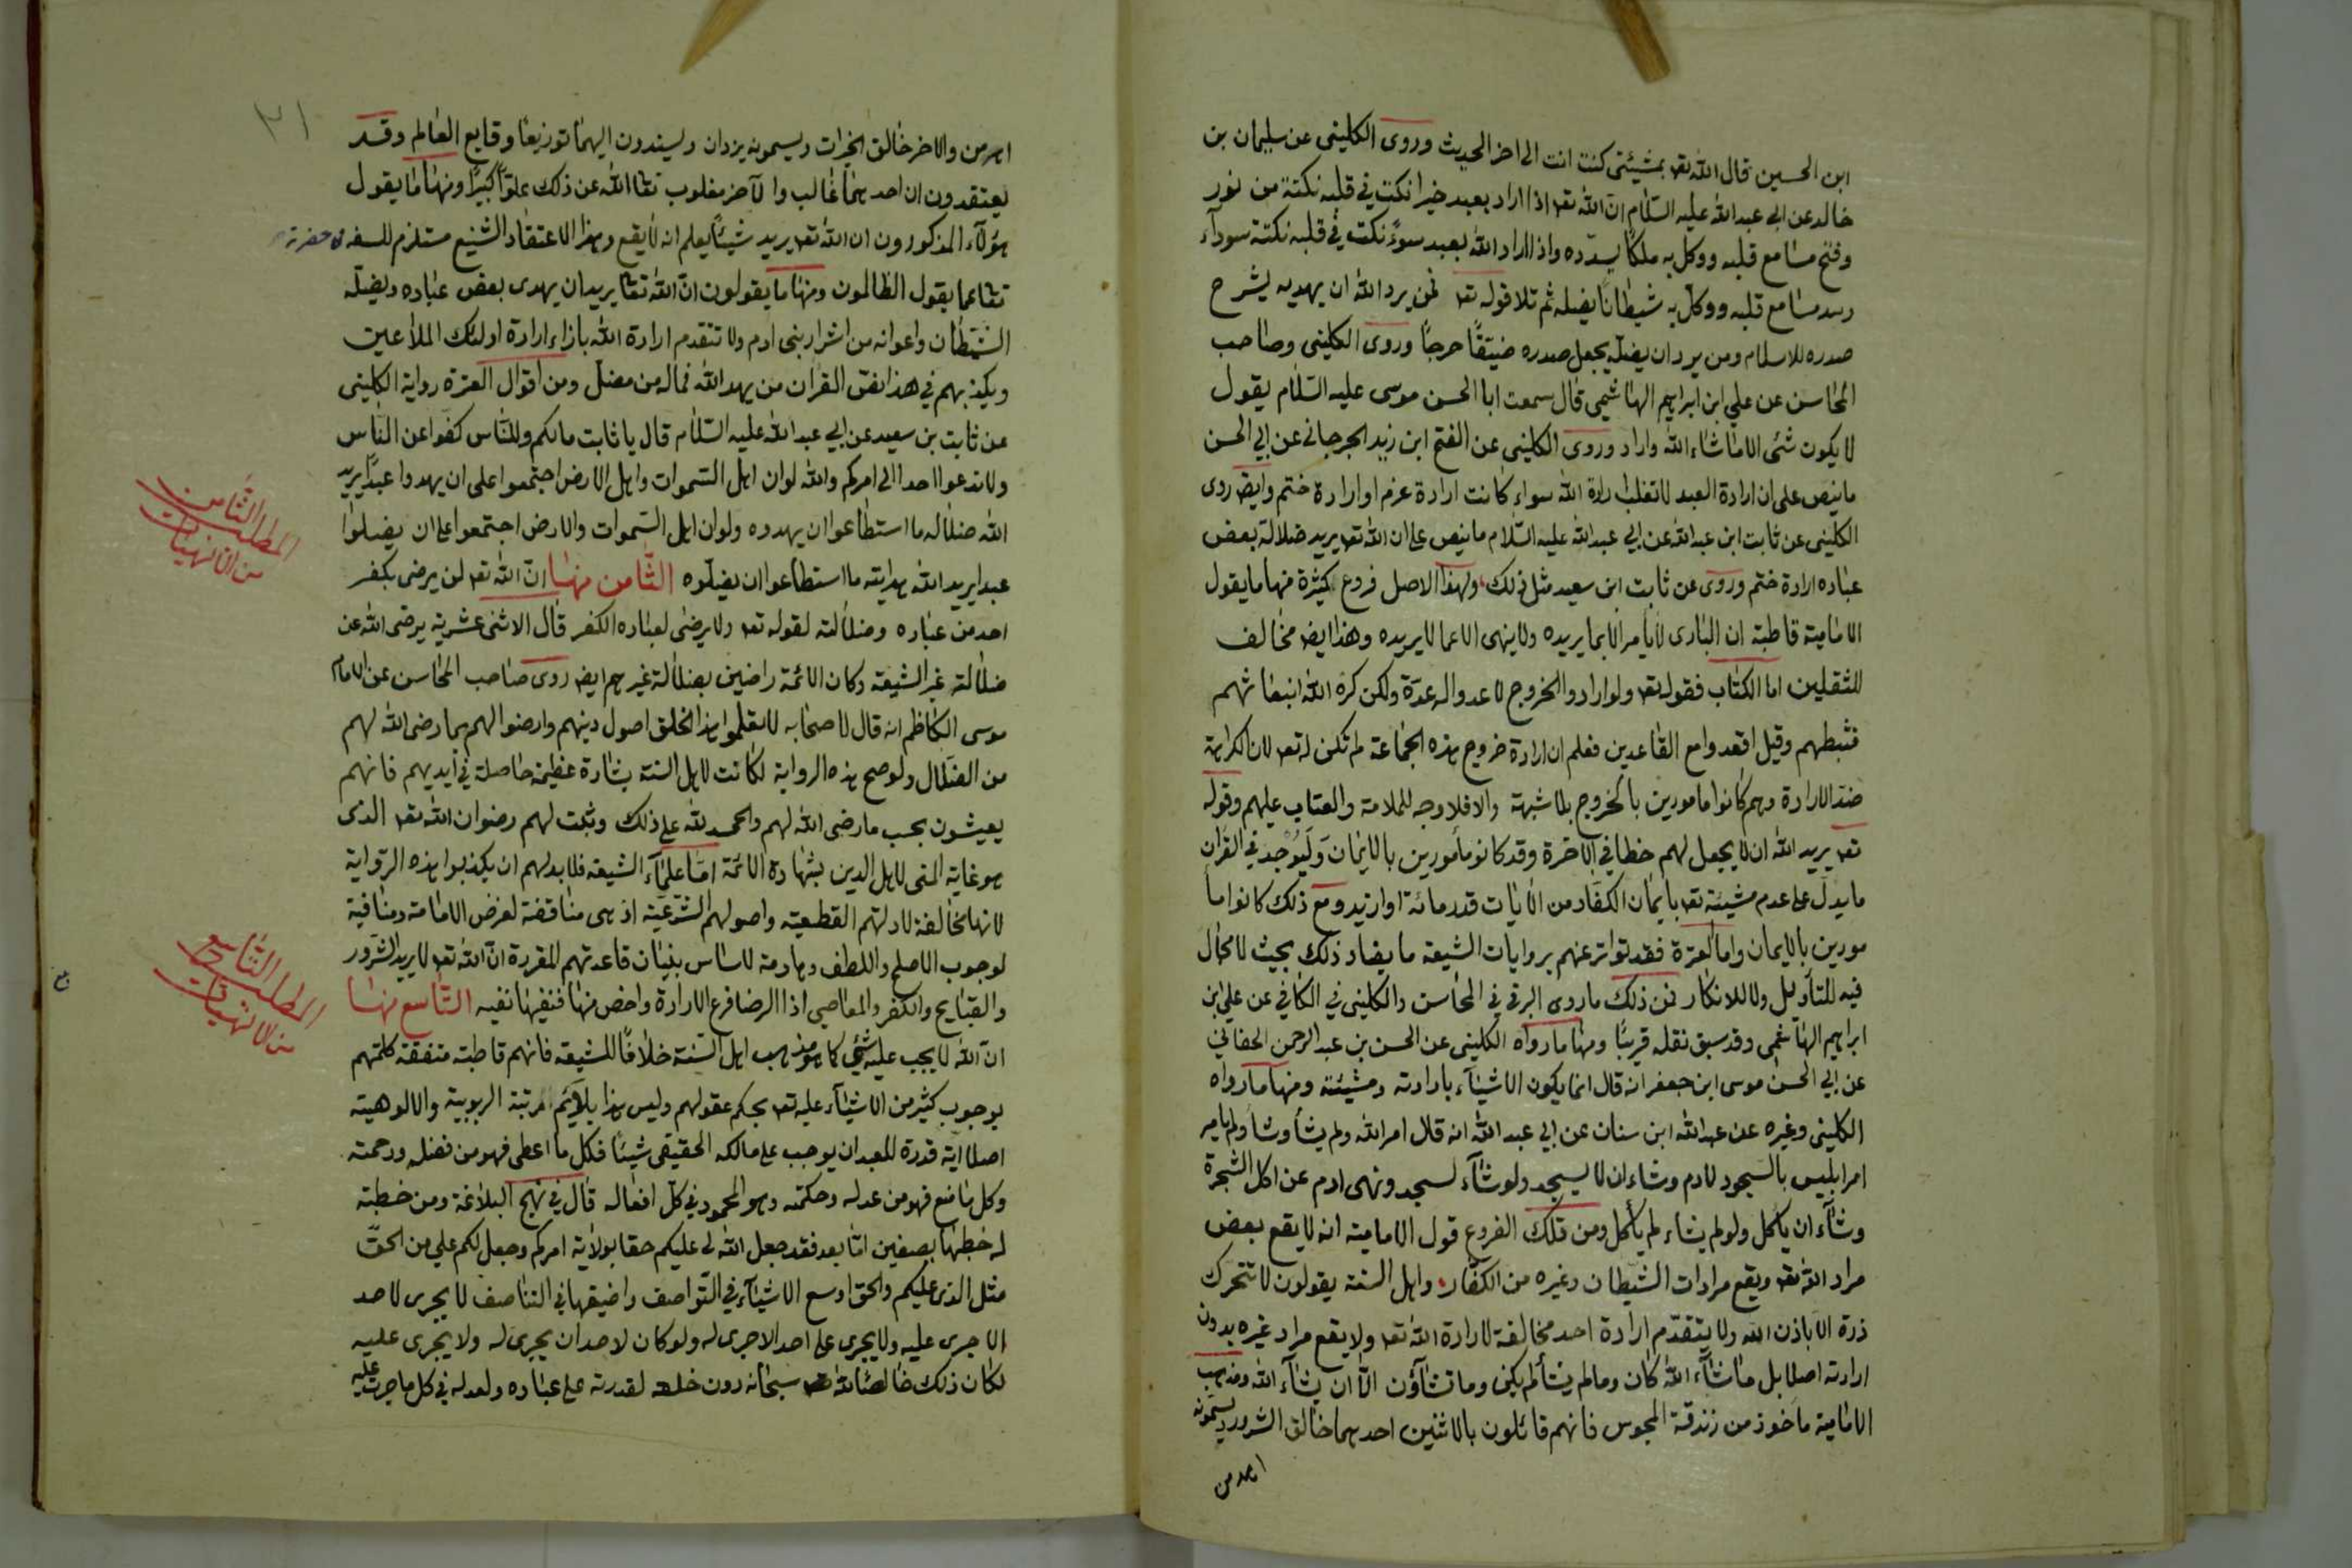 ابن الحسين قال الله تعه بمشيئتى كنت انت الى اخر الحديث وروى الكلينى عن سليمان بن
خالد عن ابى عبد الله عليه السلام ان الله تعه اذا اراد بعبد خيرا نكت فى قلبه نكتة من نور
وفتح مسامع قلبه ووكل به ملكا يسدده واذا اراد الله بعبد سوءً نكت فى قلبه نكتة سودآء
وسد مسامع قلبه ووكل به شيطانا يضله ثم تلا قوله تعه فمن يرد الله ان يهديه يشرح
صدره للاسلام ومن يرد ان يضله يجعل صدره ضيّقًا حرجًا وروى الكلينى وصاحب
المحاسن عن على ابن ابراهيم الهاشمى قال سمعت ابا الحسن موسى عليه السلام يقول
لا يكون شئ الا ما شاء الله واراد وروى الكلينى عن الفتح ابن زيد الجرجانى عن ابى الحسن
ما ينص على ان ارادة العبد لا تغلب ارادة الله سواء كانت ارادة عزم او ارادة ختم وايض روى
الكلينى عن ثابت ابن عبد الله عن ابى عبد الله عليه السلام ما ينص على ان الله تعه يريد ضلالة بعض
عباده ارادة ختم وروى عن ثابت ابن سعيد مثل ذلك ولهذا الاصل فروع كثيرة منها ما يقول
الامامية قاطبة ان البارى لا يأمر الا بما يريده ولا ينهى الا عما لا يريده وهذا ايض مخالف
للثقلين اما الكتاب فقوله تعه ولو ارادوا الخروج لاعدوا له عدة ولكن كره الله انبعاثهم
فثبطهم وقيل اقعدوا مع القاعدين فعلم ان ارادة خروج هذه الجماعة لم تكن له تعه لان الكراهة
ضد الارادة وهم كانوا مامورين بالخروج بلا شبهة والا فلا وجه للملامة والعتاب عليهم وقوله
تعه يريد الله ان لا يجعل لهم حظا فى الآخرة وقد كانو مأمورين بالايمان وليوجد فى القران
ما يدل على عدم مشيئة تعه بايمان الكفار من الايات قدر مائة او ازيد ومع ذلك كانوا ما
مورين بالايمان واما العترة فقد تواتر عنهم بروايات الشيعة ما يضاد ذلك بحيث لا مجال
فيه للتأويل ولا للانكار فمن ذلك ما روى البرقى فى المحاسن والكلينى فى الكافى عن على ابن
ابراهيم الهاشمى وقد سبق نقله قريبًا ومنها ما رواه الكلينى عن الحسن بن عبد الرحمن الحفانى
عن ابى الحسن موسى ابن جعفر انه قال انما يكون الاشيآء بارادته ومشيئته ومنها ما رواه
الكلينى وغيره عن عبد الله ابن سنان عن ابى عبد الله انه قال امر الله ولم يشأ وشأ ولم يامر
امر ابليس بالسجود لادم وشاء ان لا يسجد ولو شآء لسجد ونهى ادم عن اكل الشجرة
وشآء ان يأكل ولو لم يشاء لم يأكل ومن تلك الفروع قول الامامية انه لا يقع بعض
مراد الله تعه ويقع مرادات الشيطان وغيره من الكفار واهل السنة يقولون لا تتحرك
ذرة الا باذن الله ولا يتقدم ارادة احد مخالفة لارادة الله تعه ولا يقع مراد غيره بدون
ارادته اصلا بل ما شآء الله كان وما لم يشأ لم يكن وما تشآؤن الا ان يشآء الله ومذهب
الامامية ماخوذ من زندقة المجوس فانهم قائلون بالاثنين احدهما خالق الشرور ويسمونه
اهرمن
٣١
اهرمن والاخر خالق الخيرات ويسمونه يزدان ويسندون اليهما توزيعا وقايع العالم وقد
يعتقدون ان احدهما غالب والآخر مغلوب تعا الله عن ذلك علوًّا كبيرًا ومنها ما يقول
هؤلآء المذكورون ان الله تعه يريد شيئًا يعلم انه لا يقع وهذا الاعتقاد الشنيع مستلزم للسفه
تعا عما يقول الظالمون ومنها ما يقولون ان الله تعا يريد ان يهدى بعض عباده ويضله
الشيطان واعوانه من اشرار بنى ادم ولا تتقدم ارادة الله بازاء ارادة اولئك الملاعين
ويكذبهم فى هذا نص القران من يهد الله فما له من مضل ومن اقوال العترة رواية الكلينى
عن ثابت بن سعيد عن ابى عبد الله عليه السلام قال يا ثابت ما لكم وللناس كفوا عن الناس
ولا تدعوا احدا الى امركم والله لو ان اهل السموات واهل الارض اجتمعوا على ان يهدوا عبدًا يريد
الله ضلاله ما استطاعوا ان يهدوه ولو ان اهل السموات والارض اجتمعوا على ان يضلوا
عبدا يريد الله هدايته ما استطاعوا ان يضلوه الثامن منها ان الله تعه لن يرضى بكفر
المطلب الثامن
من الالهيات
احد من عباده وضلالته لقوله تعه ولا يرضى لعباده الكفر قال الاثنى عشرية يرضى الله عن
ضلالة غير الشيعة وكان الائمة راضين بضلالة غيرهم ايض روى صاحب المحاسن عن الامام
موسى الكاظم انه قال لاصحابه لا تعلموا هذا الخلق اصول دينهم وارضوا لهم بما رضى الله لهم
من الضلال ولو صح هذه الرواية لكانت لاهل السنة بشارة عظيمة حاصلة فى ايديهم فانهم
يعيشون بحسب ما رضى الله لهم والحمد لله على ذلك وثبت لهم رضوان الله تعه الذى
هو غاية المنى لاهل الدين بشهادة الائمة اما علمآء الشيعة فلا بد لهم ان يكذبوا هذه الرواية
لانها مخالفة لادلتهم القطعية واصولهم الشرعية اذ هى مناقضة لغرض الامامة ومنافية
لوجوب الاصلح واللطف وهادمة لاساس بنيان قاعدتهم المقررة ان الله تعه لا يريد الشرور
والقبايح والكفر والمعاصى اذا الرضا فرع الارادة واخص منها فنفيها نفيه التاسع منها
المطلب التاسع
من الالهيات
ان الله لا يجب عليه شئ كما هو مذهب اهل السنة خلافًا للشيعة فانهم قاطبة متفقة كلمتهم
بوجوب كثير من الاشيآء عليه تعه بحكم عقولهم وليس هذا يلآئم مرتبة الربوبية والالوهية
اصلا اية قدرة للعبد ان يوجب على مالكه الحقيقى شيئًا فكل ما اعطى فهو من فضله ورحمته
وكل ما منع فهو من عدله وحكمته وهو المحمود فى كل افعاله قال فى نهج البلاغة ومن خطبته
له خطبها بصفين اما بعد فقد جعل الله لى عليكم حقا بولاية امركم وجعل لكم على من الحق
مثل الذى عليكم والحق اوسع الاشيآء فى التواصف واضيقها فى التناصف لا يجرى لاحد
الا جرى عليه ولا يجرى على احد الا جرى له ولو كان لاحد ان يجرى له ولا يجرى عليه
لكان ذلك خالصًا لله سبحانه دون خلقه لقدرته على عباده ولعدله فى كل ما جرت عليه